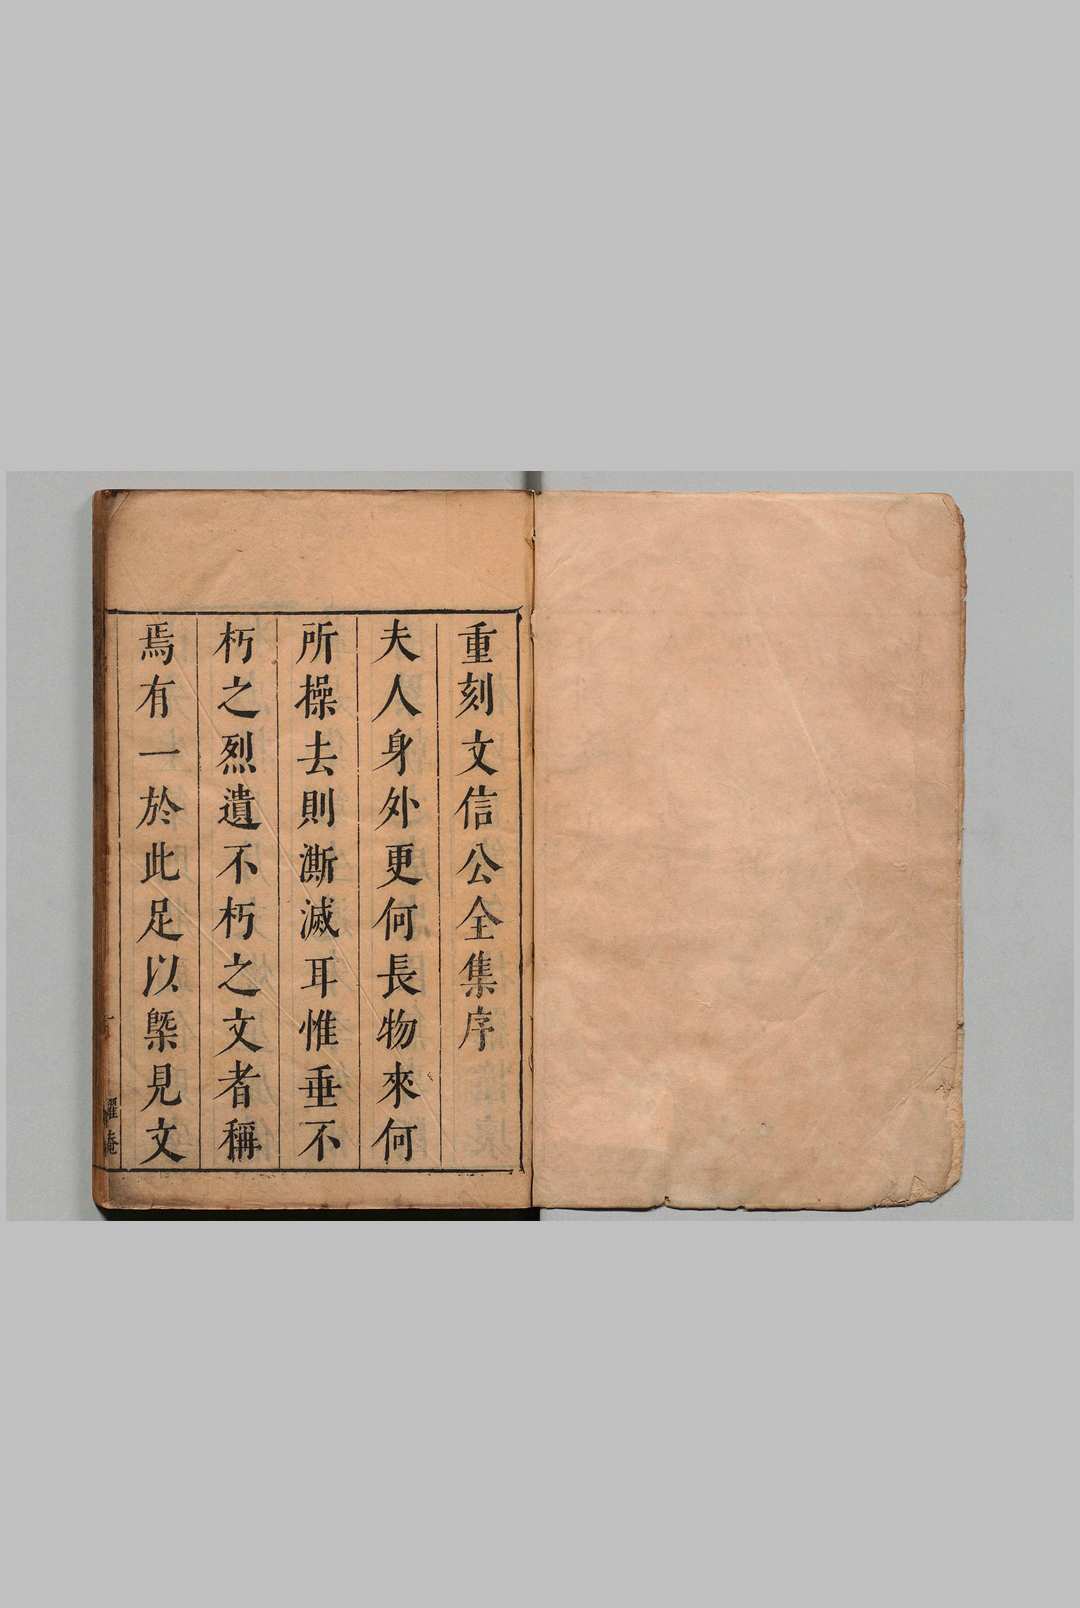 重刻文信公全集序
夫人身外更何長物來何
所操去則澌滅耳惟垂不
朽之烈遺不朽之文者稱
焉有一於此足以槩見文